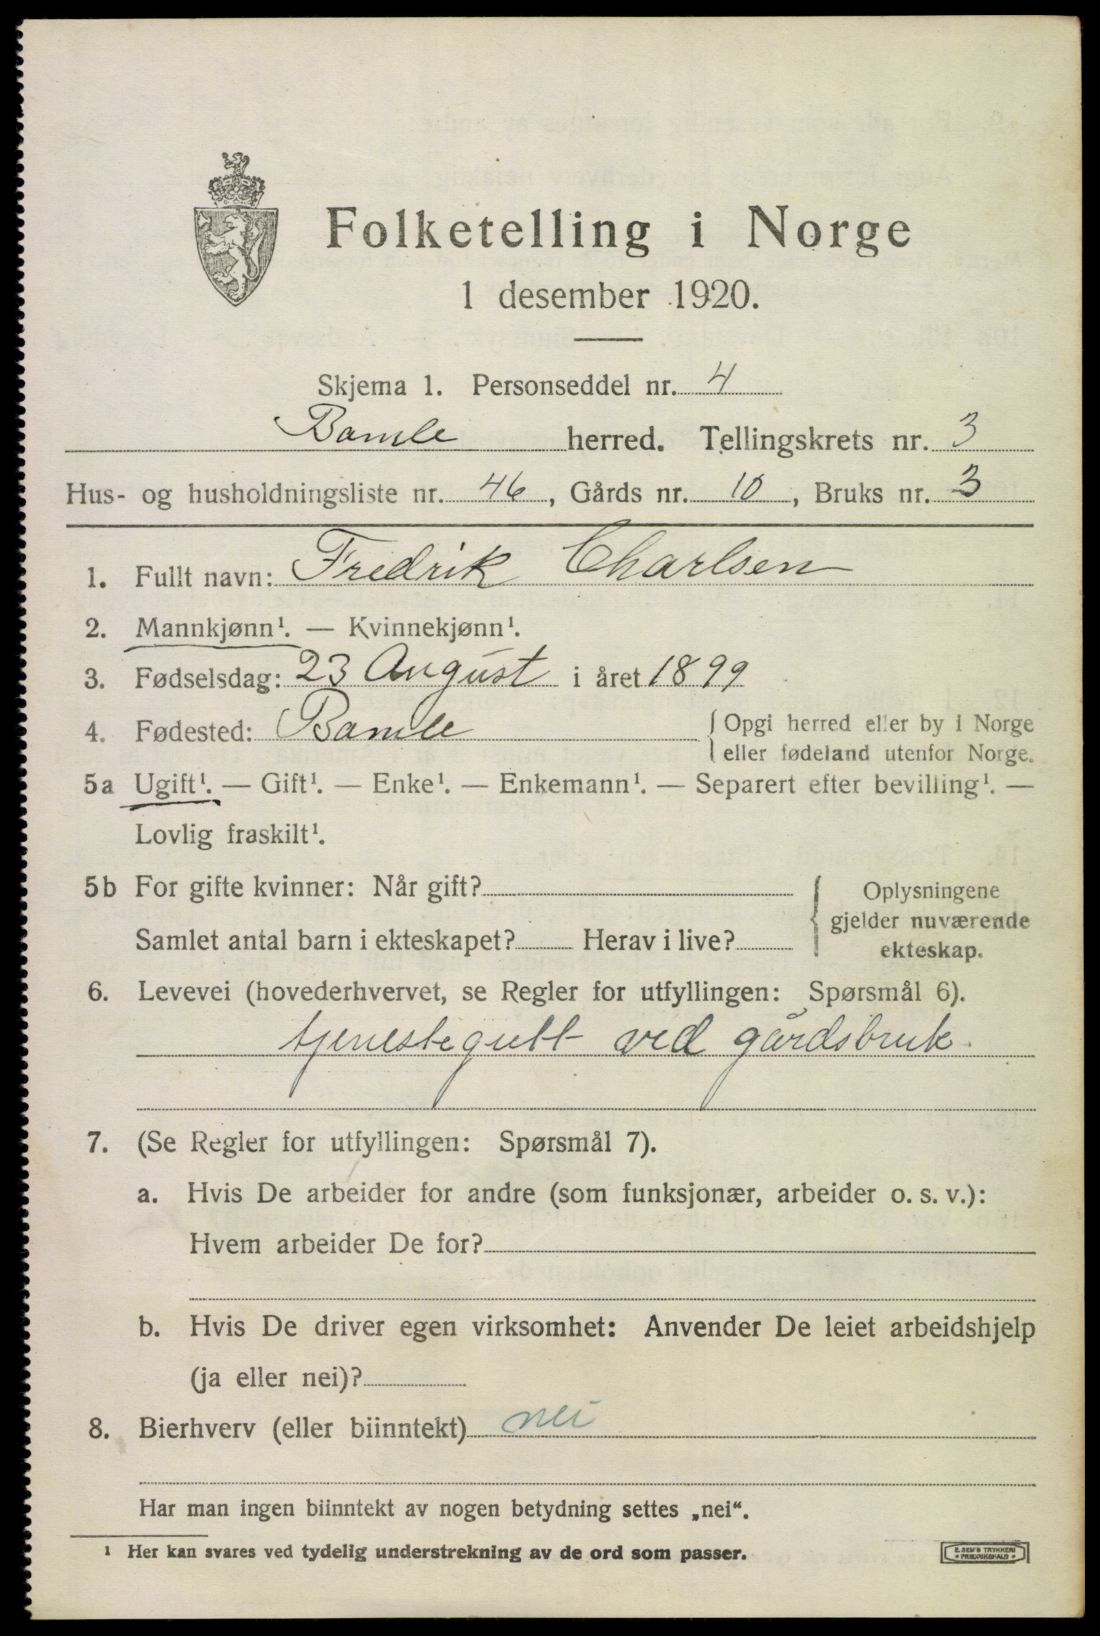 Folketelling i Norge
1 desember 1920.
Skjema 1. Personseddel nr. 4
Bamle herred. Tellingskrets nr. 3
Hus- og husholdningsliste nr. 46, Gårds nr. 10, Bruks nr. 3
1. Fullt navn: Fredrik Charlsen
2. Mannkjønn¹. — Kvinnekjønn¹.
3. Fødselsdag: 23 August i året 1899
4. Fødested: Bamle
Opgi herred eller by i Norge
eller fødeland utenfor Norge.
5a Ugift¹. — Gift¹. — Enke¹. — Enkemann¹. — Separert efter bevilling¹. —
Lovlig fraskilt¹.
5b For gifte kvinner: Når gift?
Samlet antal barn i ekteskapet? Herav i live?
Oplysningene
gjelder nuværende
ekteskap.
6. Levevei (hovederhvervet, se Regler for utfyllingen: Spørsmål 6).
tjenestegutt ved gårdsbruk.
7. (Se Regler for utfyllingen: Spørsmål 7).
a. Hvis De arbeider for andre (som funksjonær, arbeider o. s. v.):
Hvem arbeider De for?
b. Hvis De driver egen virksomhet: Anvender De leiet arbeidshjelp
(ja eller nei)?
8. Bierhverv (eller biinntekt) nei
Har man ingen biinntekt av nogen betydning settes „nei“.
¹ Her kan svares ved tydelig understrekning av de ord som passer.
E. SEM'S TRYKKERI
FREDRIKSHALD